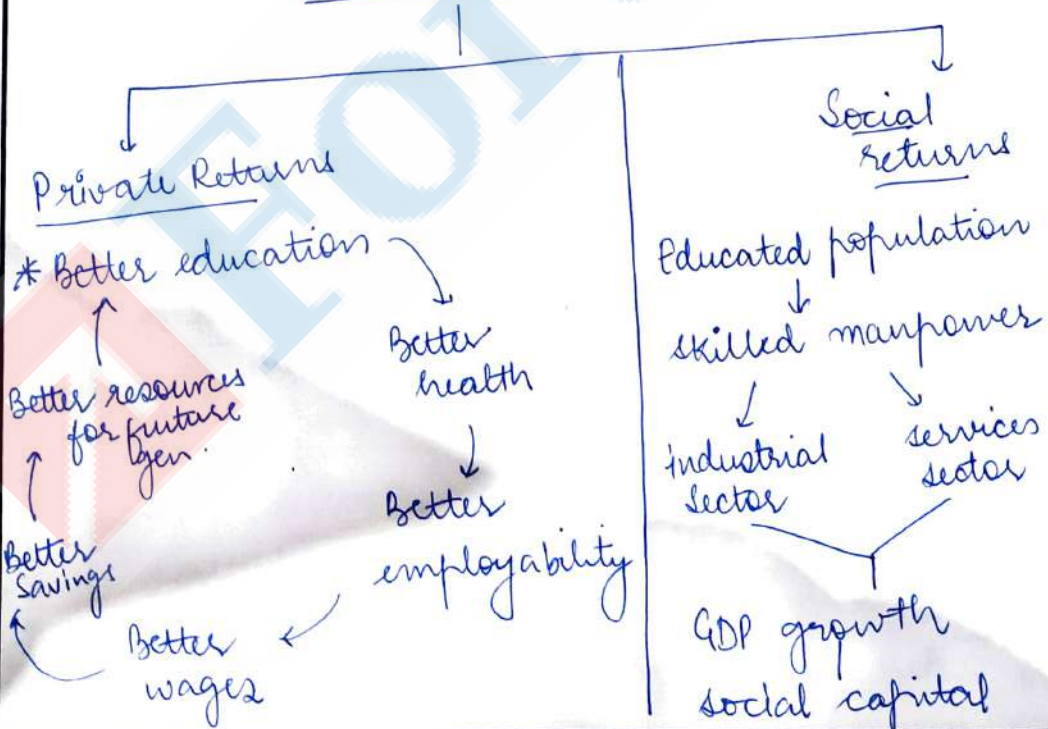 Private Returns
* Better education
Better
health
Better
employability
Better
wages
Better
Savings
Better resources
for future
gen.
Social
returns
Educated population
skilled manpower
industrial
Sector
services
sector
GDP growth
social capital